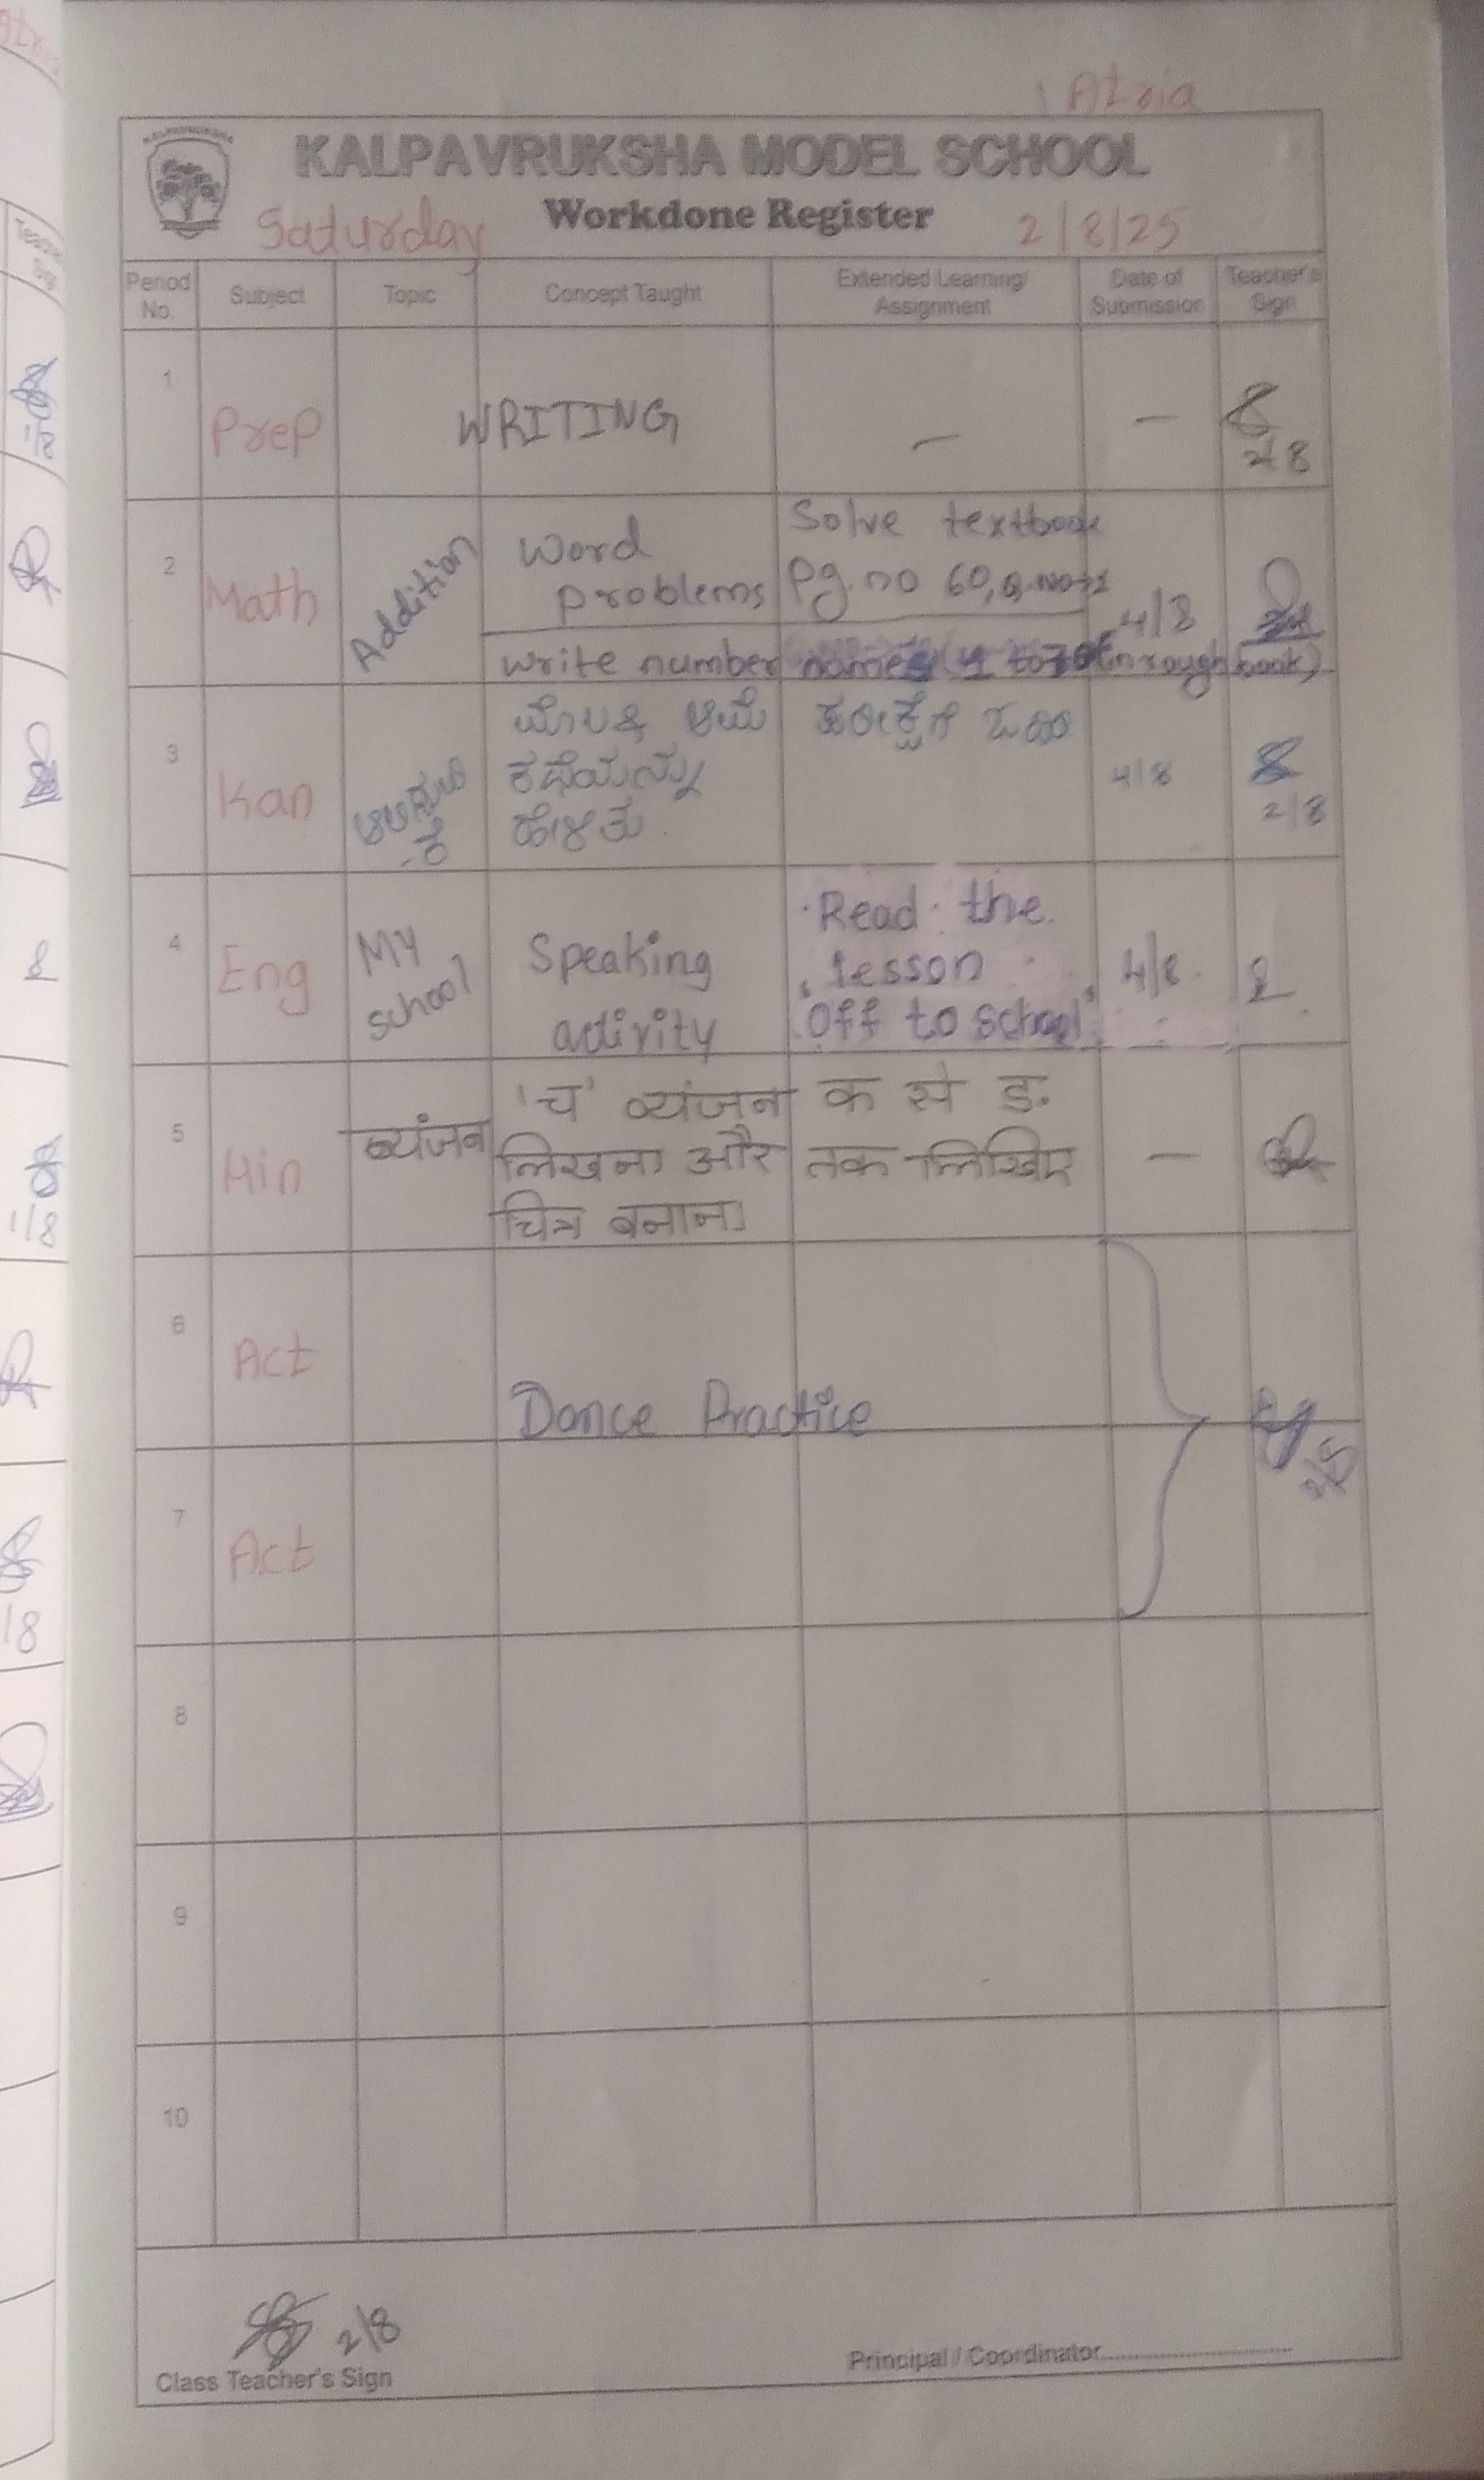 1 Atria
KALPAVRUKSHA
KALPAVRUKSHA MODEL SCHOOL
Saturday Workdone Register 2/8/25
Period No. Subject Topic Concept Taught Extended Learning/ Assignment Date of Submission Teacher's Sign
1 Prep WRITING – – 2/8
2 Math Addition Word problems Solve textbook Pg.no 60, Q.No→1 4/8
Write number names (1 to in rough book)
3 Kan ಮೊಲ & ಆಮೆ ಕಥೆಯನ್ನು 4/8 2/8
4 Eng My school Speaking activity Read the lesson "Off to school" 4/8
5 Hin व्यंजन 'च' व्यंजन लिखना और चित्र बनाना क से ङ. तक लिखिए –
6 Act
Dance Practice 2/8
7 Act
8
9
10
2/8
Class Teacher's Sign Principal / Coordinator